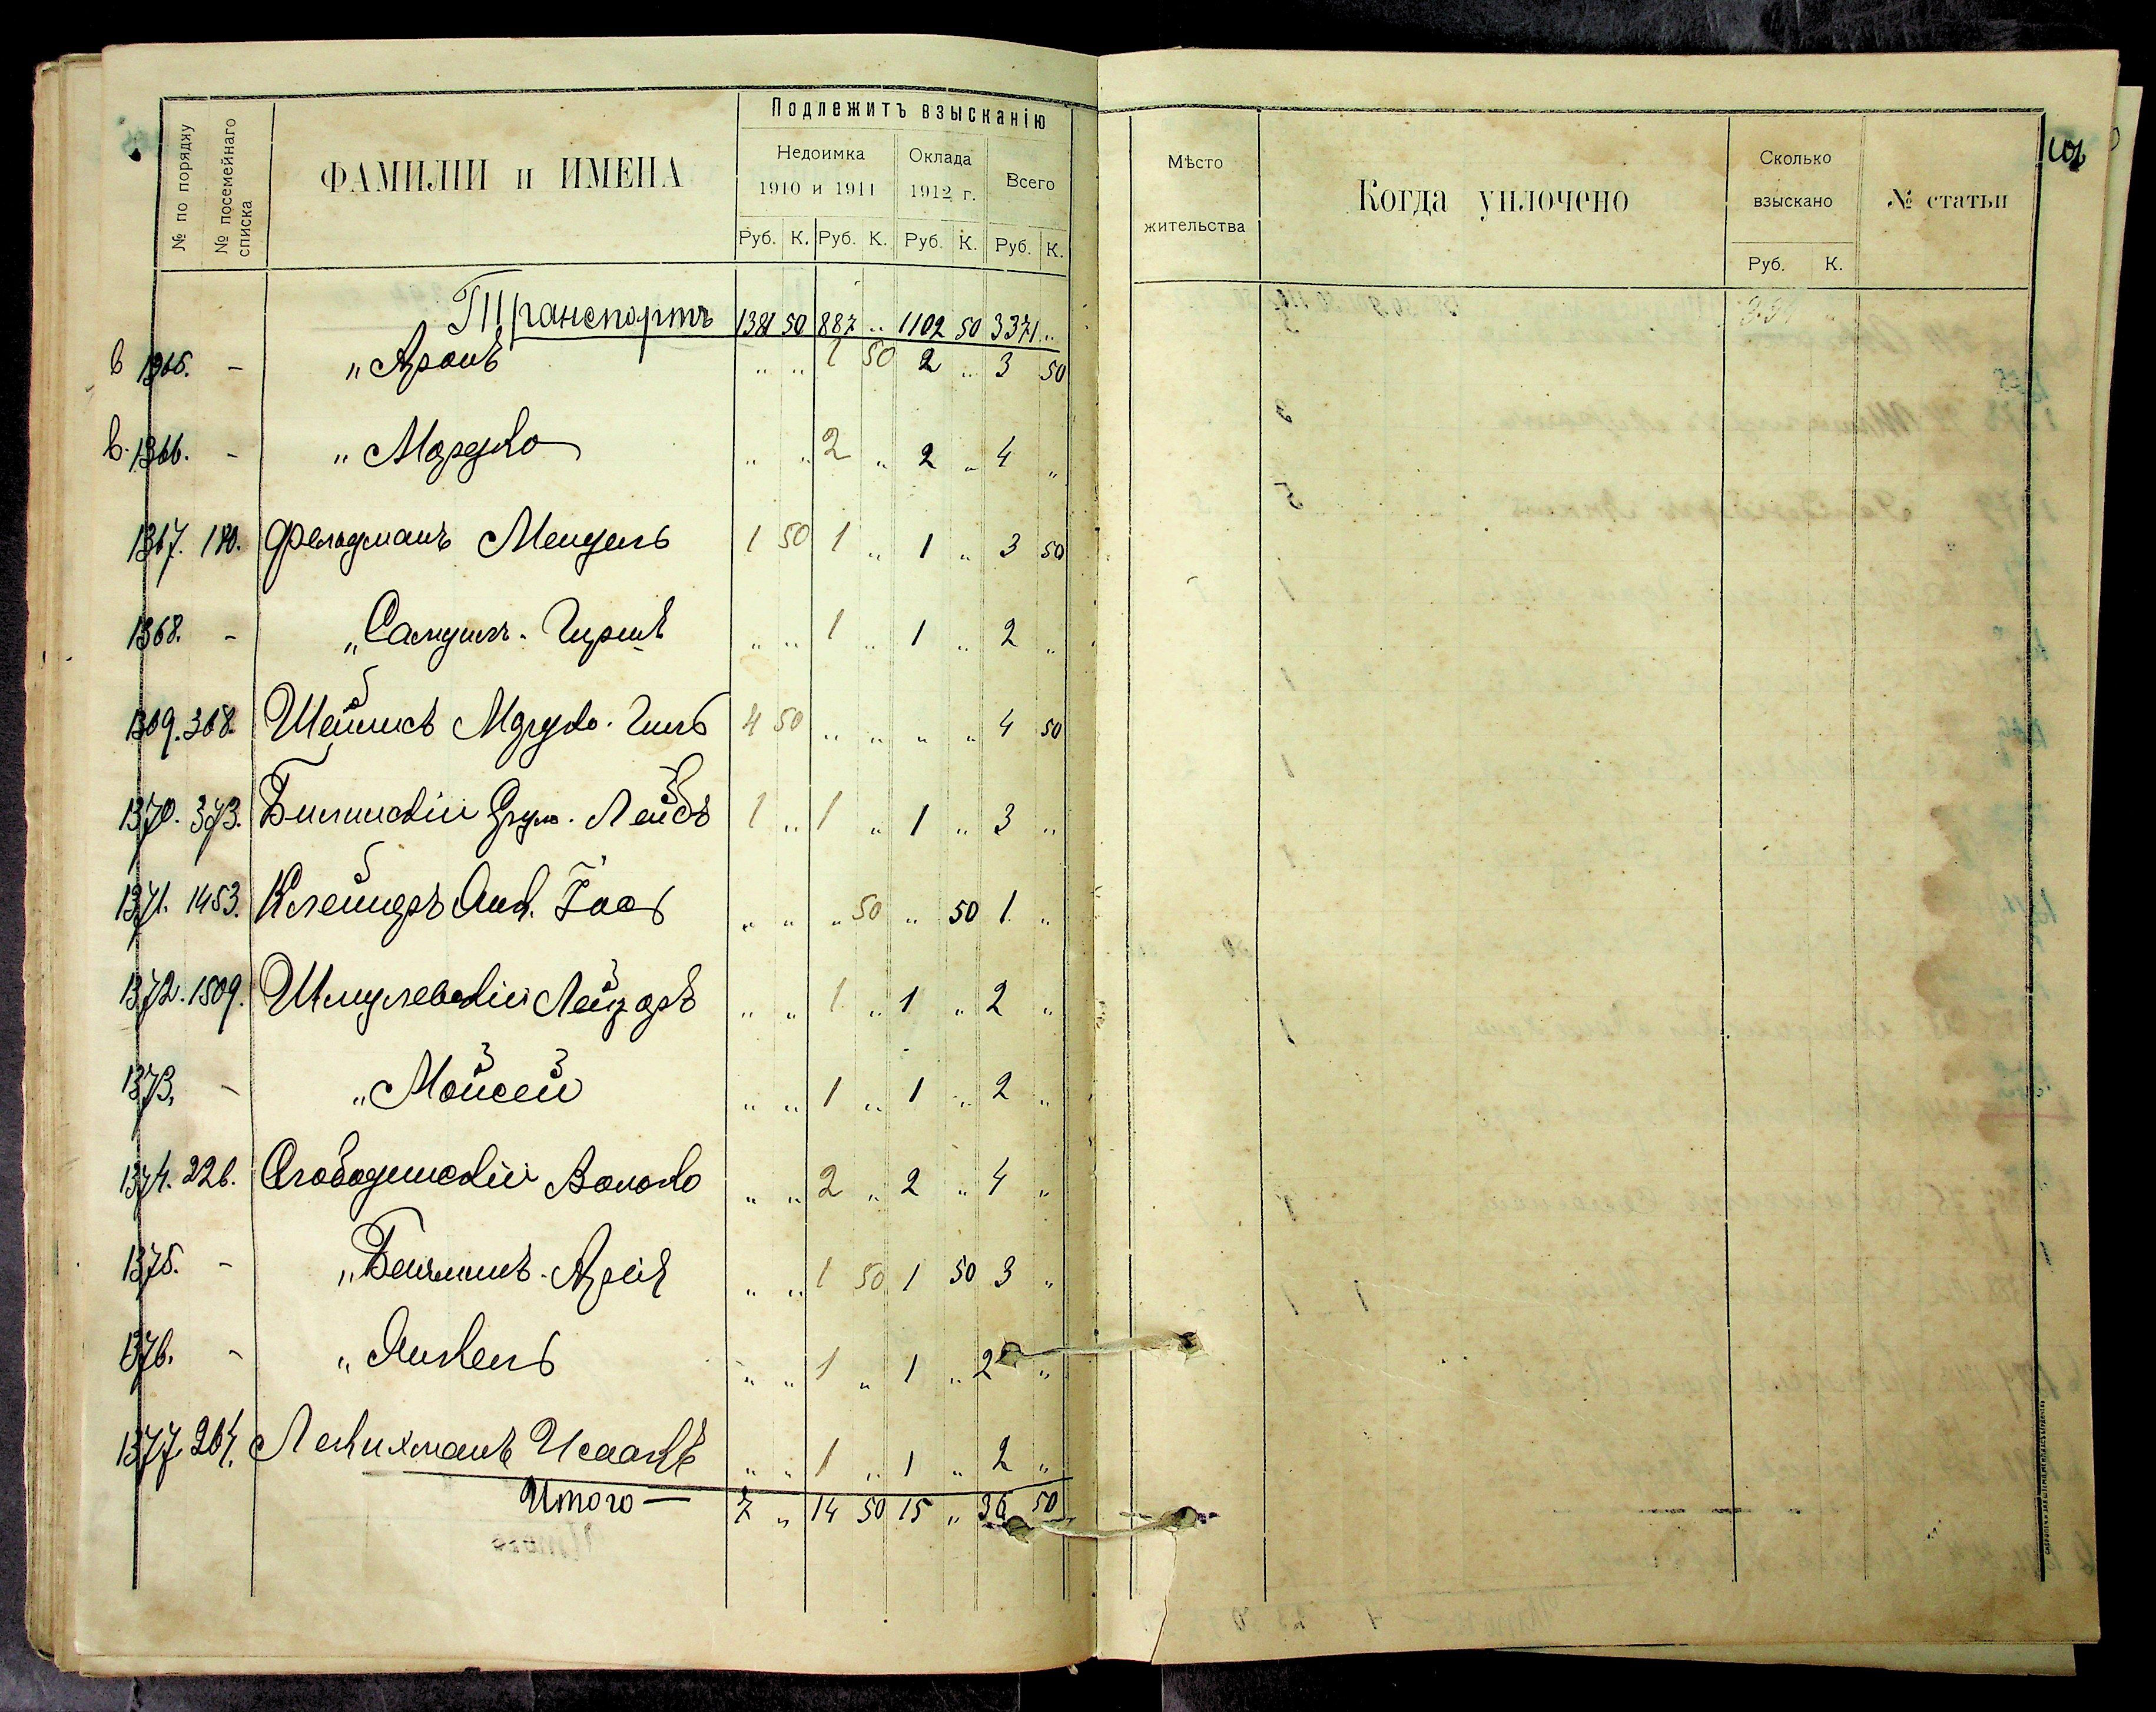 Подлежитъ взысканію
№ по порядку
№ посемейнаго списка
ФАМИЛІИ и ИМЕНА
Недоимка 1910 и 1911
Оклада 1912 г.
Всего
Руб. К. Руб. К. Руб. К. Руб. К.
Мѣсто жительства
Когда уплочено
Сколько взыскано
Руб. К.
№ статьи
Транспортъ 1381 50 887 „ 1102 50 3371 „
в 1365. - „ Аронъ „ „ 1 50 2 „ 3 50
в. 1366. - „ Мордко „ „ 2 „ 2 „ 4 „
1367. 180. Фельдманъ Мендель 1 50 1 „ 1 „ 3 50
1368. - „ Самуилъ-Гиршъ „ „ 1 „ 1 „ 2 „
1369. 368. Шейнисъ Мордко-Гиль 4 50 „ „ „ „ 4 50
1370. 373. Билинскій Лейбъ 1 „ 1 „ 1 „ 3 „
1371. 1453. Клейнеръ „ „ „ 50 „ 50 1 „
1372. 1509. Шмулевскій Лейзоръ „ „ 1 „ 1 „ 2 „
1373. - „ Мойсей „ „ 1 „ 1 „ 2 „
1374. 226. Слободинскій Волько „ „ 2 „ 2 „ 4 „
1375. - „ Беньминъ-Арія „ „ 1 50 1 50 3 „
1376. - „ Янкель „ „ 1 „ 1 „ 2 „
1377. 264. Исаакъ „ „ 1 „ 1 „ 2 „
Итого — 7 „ 14 50 15 „ 36 50